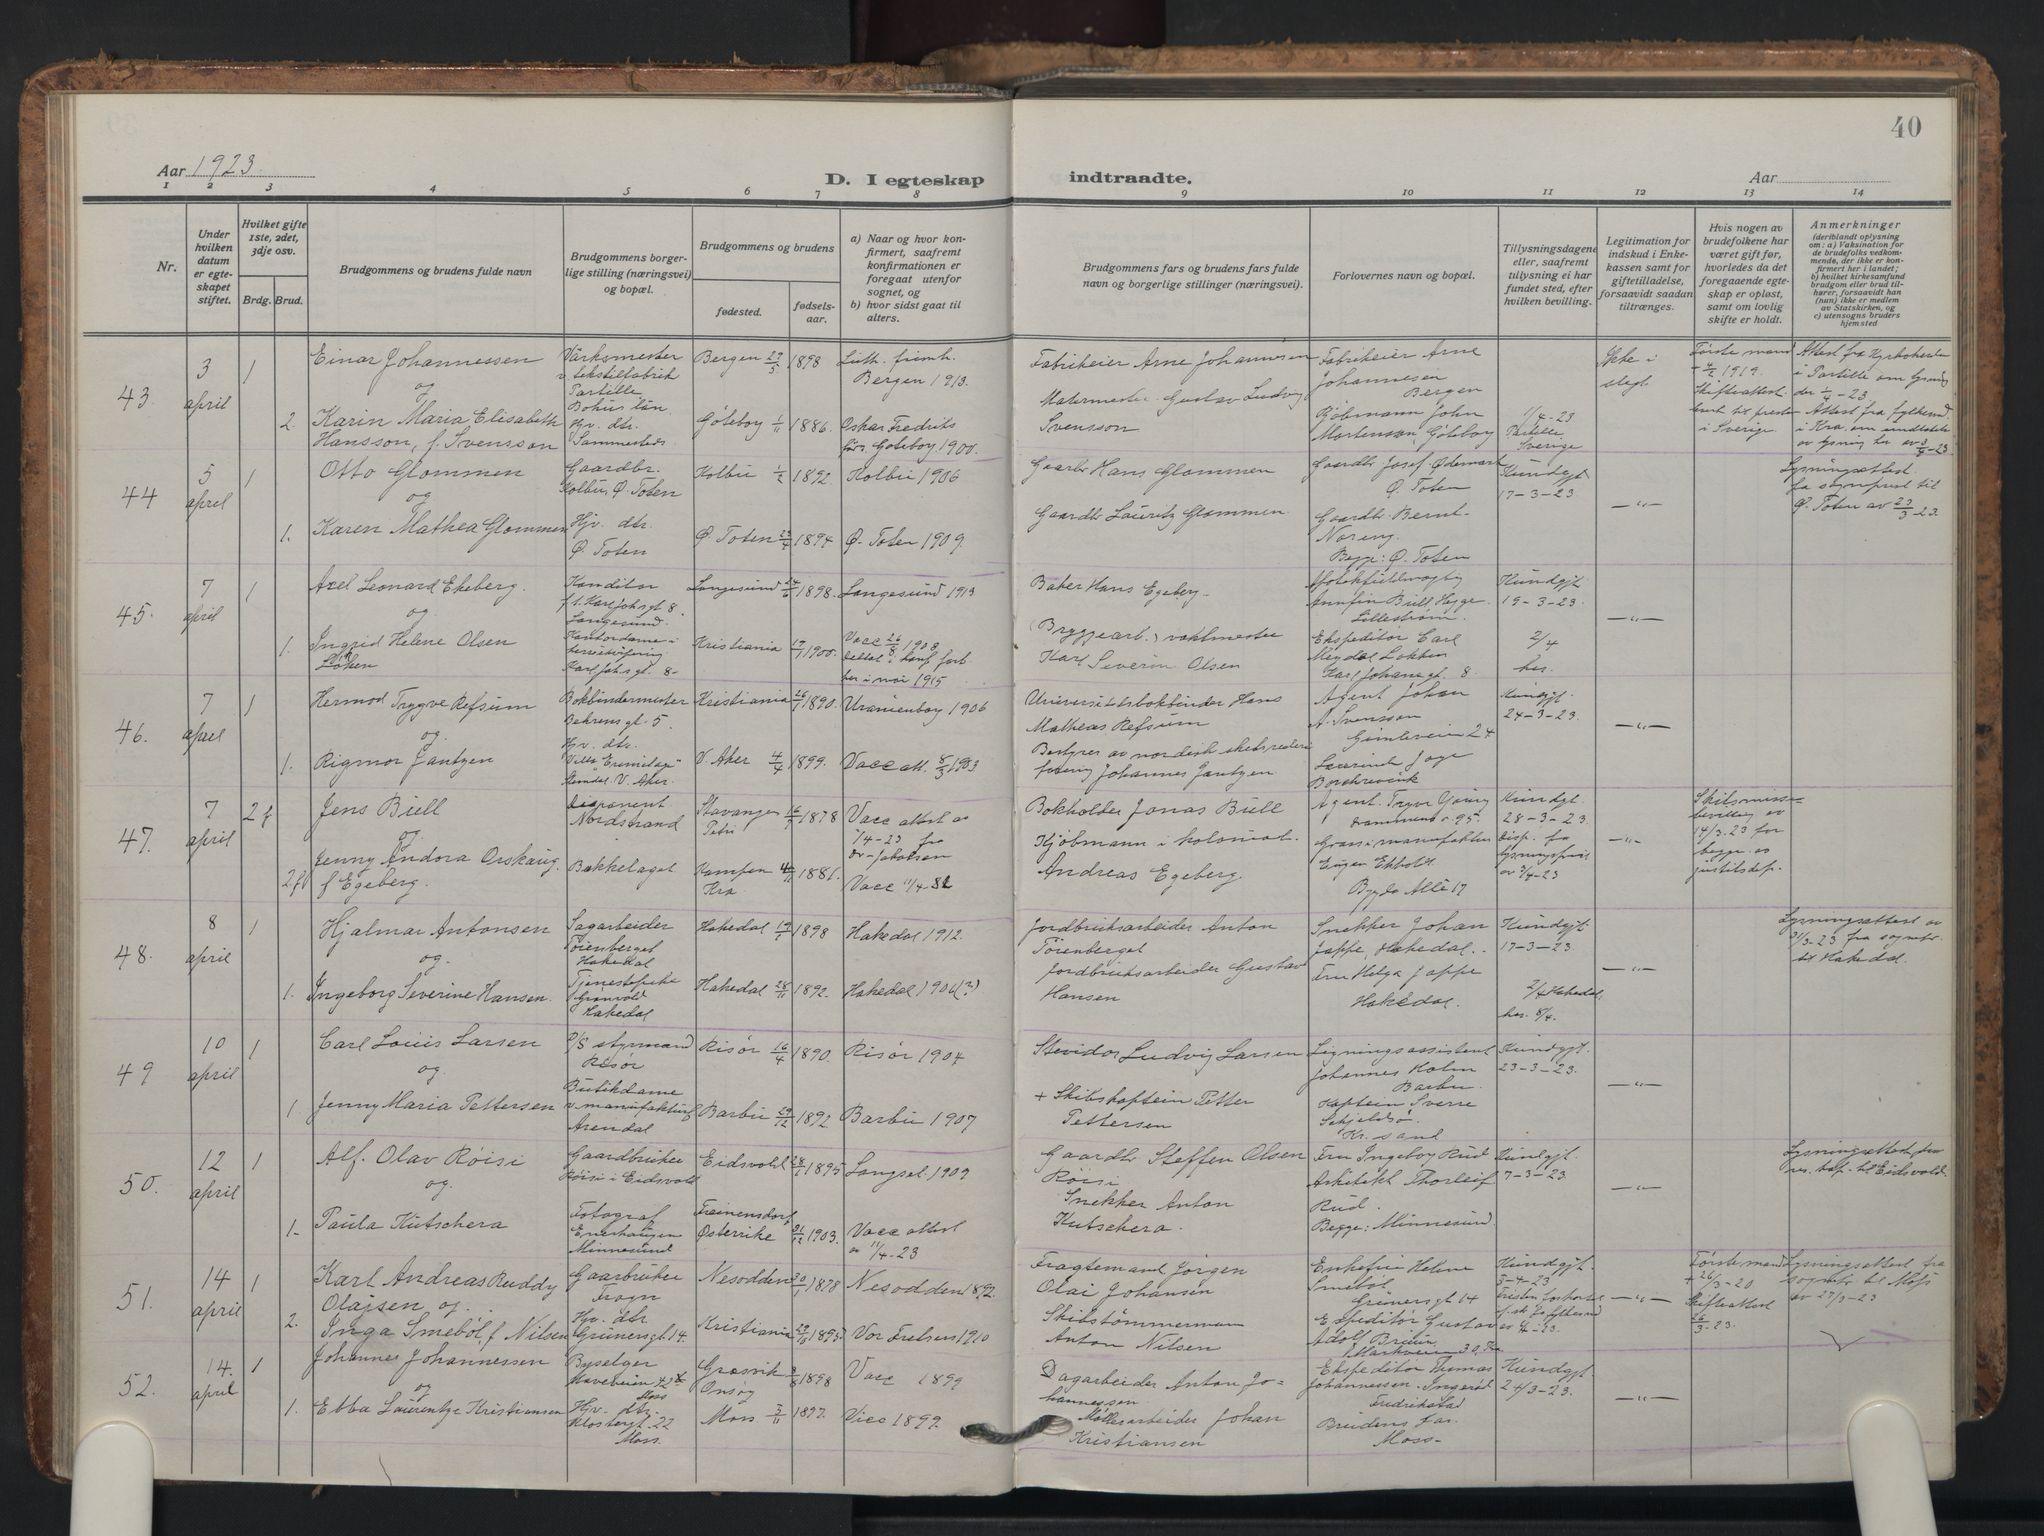 40
Aar 1923.
D. I egteskap indtraadte.
Aar
1 2 3 4 5 6 7 8 9 10 11 12 13 14
Nr.
Under hvilken datum er egteskapet stiftet.
Hvilket gifte 1ste, 2det, 3dje osv.
Brdg. Brud.
Brudgommens og brudens fulde navn
Brudgommens borgerlige stilling (næringsvei) og bopæl.
Brudgommens og brudens
fødested.
fødselsaar.
a) Naar og hvor konfirmert, saafremt konfirmationen er foregaat utenfor sognet, og
b) hvor sidst gaat til alters.
Brudgommens fars og brudens fars fulde navn og borgerlige stillinger (næringsvei).
Forlovernes navn og bopæl.
Tillysningsdagene eller, saafremt tullysning ei har fundet sted, efter hvilken bevilling.
Legitimation for indskud i Enkekassen samt for giftetilladelse, forsaavidt saadan tiltrænges.
Hvis nogen av brudefolkene har været gift før, hvorledes da det foregaaende egteskap er opløst, samt om lovlig skifte er holdt.
Anmerkninger
(deriblandt oplysning om: a) Vaksination for de brudefolks vedkommende, der ikke er konfirmert her i landet; b) hvilket kirkesamfund brudgom eller brud tilhører, forsaavidt han (hun) ikke er medlem av Statskirken, og c) utensogns bruders hjemsted
43. 3 april 1
Einar Johannessen
og
2. Karin Maria Elisabeth
Hansson, f. Svensson
Værksmester
v. tekstilfabrik
Partille
Bohus län.
Hjv. dtr.
Sammesteds.
Bergen 29/5 1898
Göteborg 1/11 1886.
Luth. frimh.
Bergen 1913.
Oskar Fredriks
förs. Göteborg 1900.
Fabrikeier Arne Johannesen
Gustav Ludvig
Svensson
Fabrikeier Arne
Johannesen
Bergen
Kjøbmann John
Mortenson, Göteborg
1/4-23
Partille
Sverige
Ikke i
slegt
Første mand
1919.
Skifteattest
i Sverige
i Partille om lysning
44 5 april 1
Otto Glommen
og
1. Karen Mathea Glommen
Gaardbr.
Kolbu, Ø. Toten
Hjv. dtr.
Ø. Toten
Kolbu 1/2 1892.
Ø. Toten 23/4 1894
Kolbu 1906
Ø. Toten 1909.
Gaardbr Hans Glommen
Gaardbr Lauritz Glommen.
Gaardbr. Josef Ødemark
Ø. Toten
Gaardbr. Bernt
Noreng.
Begge: Ø. Toten
Kundgjt
17-3-23
-"-
Lysningsattest
fra sogneprest til
Ø. Toten av 23/3-23.
45. 7 april 1
Axel Leonard Ekeberg.
og
1. Ingrid Helene Olsen
Løken
Konditor
f.t. Karl Johsgt 8.
Langesund.
Kontordame i
Karl Johsgt. 8-
Langesund 24/6 1898.
Kristiania 17/1 1900.
Langesund 1913
Vacc 26/8 1908
her i mai 1915
Baker Hans Egeberg.
(Bryggearb.) vaktmester
Karl Severin Olsen
Annfin Bull Hegge.
Lillestrøm.
Ekspeditør Carl
Meydel Løkken
Karl Johansgt. 8.
Kundgjt.
19-3-23.
2/4
her.
-"-
46. 7 april 1
Hermod Trygve Refsum
og.
1. Rigmor Jantzen
Bokbindermester
Behrensgt. 5
Hjv. dtr.
Villa "Eremitage"
V. Aker.
Kristiania 26/1 1890.
V. Aker 4/4 1899.
Uranienborg 1906
Vacc att. 8/3 1903
Universitetsbokbinder Hans
Mathias Refsum
Bestyrer av nordisk skibsrederi
forening Johannes Jantzen
Agent Johan
A. Svensson
Gimleveien 24
Borchrevink
Kundgjt.
24-3-23.
-"-
47. 7 april 2 f
Jens Bull
og.
2 f Jenny Andora Orskaug.
f Egeberg.
Disponent
Nordstrand
Bækkelaget
Stavanger
Petri 16/7 1878
Kampen
Kra. 1886.
Vacc attest av
1/4-23 fra
dr. Jakobsen
Vacc 11/4-82
Bokholder Jonas Bull
Kjøbmann i kolonial
Andreas Egeberg.
Agent. Trygve
Drammensv. 95.
Bygdø Allé 17
Kundgt.
28-3-23.
-"-
Skilsmisse-
bevilling av
14/3.23 for
begge av
justitsdep.
48. 8 april 1
Hjalmar Antonsen
og.
1. Ingeborg Severine Hansen.
Sagarbeider
Tøienberget
Hakedal
Tjenestepike
Grønvold
Hakedal
Hakedal 19/1 1898
Hakedal 28/11 1892.
Hakedal 1912.
Hakedal 1906(?)
Jordbruksarbeider Anton
Tøienberget
Jordbruksarbeider Gustav
Hansen
Snekker Johan
Jappe, Hakedal.
Fru Helga Jappe
Hakedal.
Kundgjt.
17-3-23.
2/4 Hakedal.
her. 8/4.
-"-
Lysningsattest av
21/3-23 fra sognepr.
til Hakedal.
49 10 april 1
Carl Louis Larsen
og.
1. Jenny Maria Pettersen
D/S styrmand
Risør
Butikdame
v. manufaktur
Arendal
Risør 16/4 1890.
Barbu 29/12 1892
Risør 1904
Barbu 1907
Stevidor Ludvig Larsen
+ Skibskaptein Petter
Pettersen
Ligningsassistent
Johannes Holm
Barbu.
Kaptein Sverre
Skjeldsø.
Kr.sand
Kundgjt.
23-3-23.
-"-
50. 12 april 1
Alf. Olav Røisi
og.
1- Paula Kutschera
Gaardbruker
Røisi i Eidsvold
Fotograf
Minnesund
Eidsvold 28/1 1895
Østerrike 21/12 1903.
Langset 1909
Vacc attest
av 11/4-23
Gaardbr Steffen Olsen
Røisi
Snekker Anton
Kutschera.
Fru Ingeborg Rud
Arkitekt Thorleif
Rud.
Begge: Minnesund.
Kundgjt.
7-3-23.
-"-
Lysningsattest fra
res. kap. til Eidsvold.
51. 14 april 1
Karl Andreas Ruddy
Olajsen og.
2. Inga Smebøl, f Nilsen
Gaarbruker
Frogn
Hjv. dtr
Grünersgt 14.
Nesodden 30/1 1878
Kristiania 29/6 1895
Nesodden 1892.
Vor Frelsers 1910
Fragtemand Jørgen
Olai Johansen
Skibstømmermann
Anton Nilsen
Enkefru Helene
Smebøl
Grünersgt 14
Ekspeditør Gustav
Adolf Bruun
Markveien 30, Kra
Kundgjt.
3-4-23
-"-
Første mand
+ 26/3-20
Skifteattest
26/3-23.
Lysningsattest fra
sognepr. til Moss
av 27/3-23
52. 14. april 1
Johannes Johannessen
og
1. Ebba Laurentze Kristiansen
Byselger
Moss
Hjv. dtr.
Klostergt. 22
Moss.
Græsvik
Onsøy 3/8 1898
Moss 3/11 1897.
Vacc 1899
Vacc 1899.
Dagarbeider Anton Jo-
hannessen.
Møllerarbeider Johan
Kristiansen
Ekspeditør Thomas
Johannessen. Ingerød
Fredrikstad
Brudens far.
Moss-
Kundgjt
24/3-23.
-"-